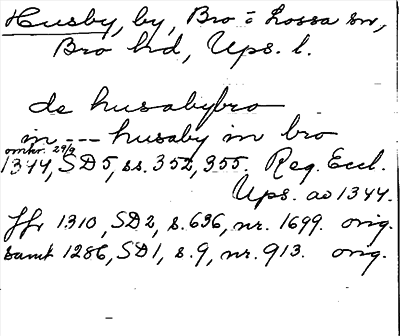 Husby, by, Bro o Lossa sn,
Bro hd, Ups. l.
de husabybro
in --- husaby in bro
omkr. 29/9
1344, SD5, ss. 352, 355. Reg. Eccl.
Ups. ao 1344.
jfr 1310, SD2, s. 636, nr. 1699. orig.
samt 1286, SD1, s. 9, nr. 913. orig.